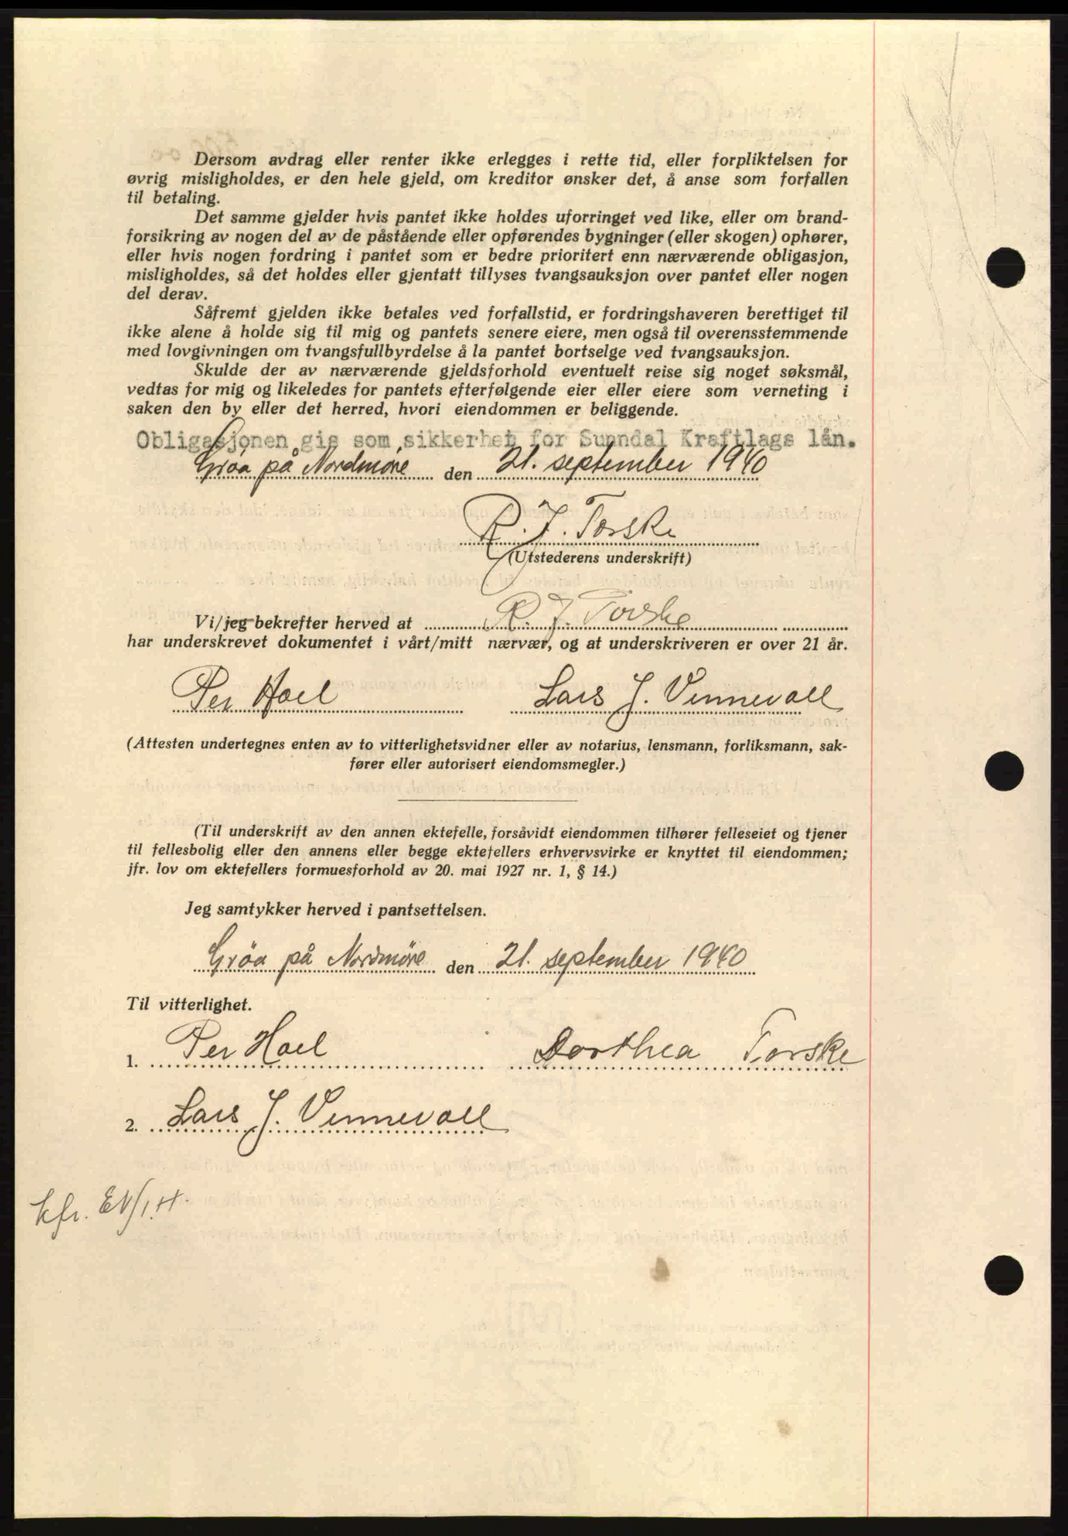 Dersom avdrag eller renter ikke erlegges i rette tid, eller forpliktelsen for
øvrig misligholdes, er den hele gjeld, om kreditor ønsker det, å anse som forfallen
til betaling.
Det samme gjelder hvis pantet ikke holdes uforringet ved like, eller om brand-
forsikring av nogen del av de påstående eller opførendes bygninger (eller skogen) ophører,
eller hvis nogen fordring i pantet som er bedre prioritert enn nærværende obligasjon,
misligholdes, så det holdes eller gjentatt tillyses tvangsauksjon over pantet eller nogen
del derav.
Såfremt gjelden ikke betales ved forfallstid, er fordringshaveren berettiget til
ikke alene å holde sig til mig og pantets senere eiere, men også til overensstemmende
med lovgivningen om tvangsfullbyrdelse å la pantet bortselge ved tvangsauksjon.
Skulde der av nærværende gjeldsforhold eventuelt reise sig noget søksmål,
vedtas for mig og likeledes for pantets efterfølgende eier eller eiere som verneting i
saken den by eller det herred, hvori eiendommen er beliggende.
Obligasjonen gis som sikkerhet for Sunndal Kraftlags lån.
Grøa på Nordmøre den 21. september 1940
R. J. Torske
(Utstederens underskrift)
Vi/jeg bekrefter herved at R. J. Torske
har underskrevet dokumentet i vårt/mitt nærvær, og at underskriveren er over 21 år.
Per Hoel Lars J. Vennevoll
(Attesten undertegnes enten av to vitterlighetsvidner eller av notarius, lensmann, forliksmann, sak-
fører eller autorisert eiendomsmegler.)
(Til underskrift av den annen ektefelle, forsåvidt eiendommen tilhører felleseiet og tjener
til fellesbolig eller den annens eller begge ektefellers erhvervsvirke er knyttet til eiendommen;
jfr. lov om ektefellers formuesforhold av 20. mai 1927 nr. 1, § 14.)
Jeg samtykker herved i pantsettelsen.
Grøa på Nordmøre den 21. september 1940
Til vitterlighet.
1. Per Hoel Dorthea Torske
2. Lars J. Vennevoll
kfr.